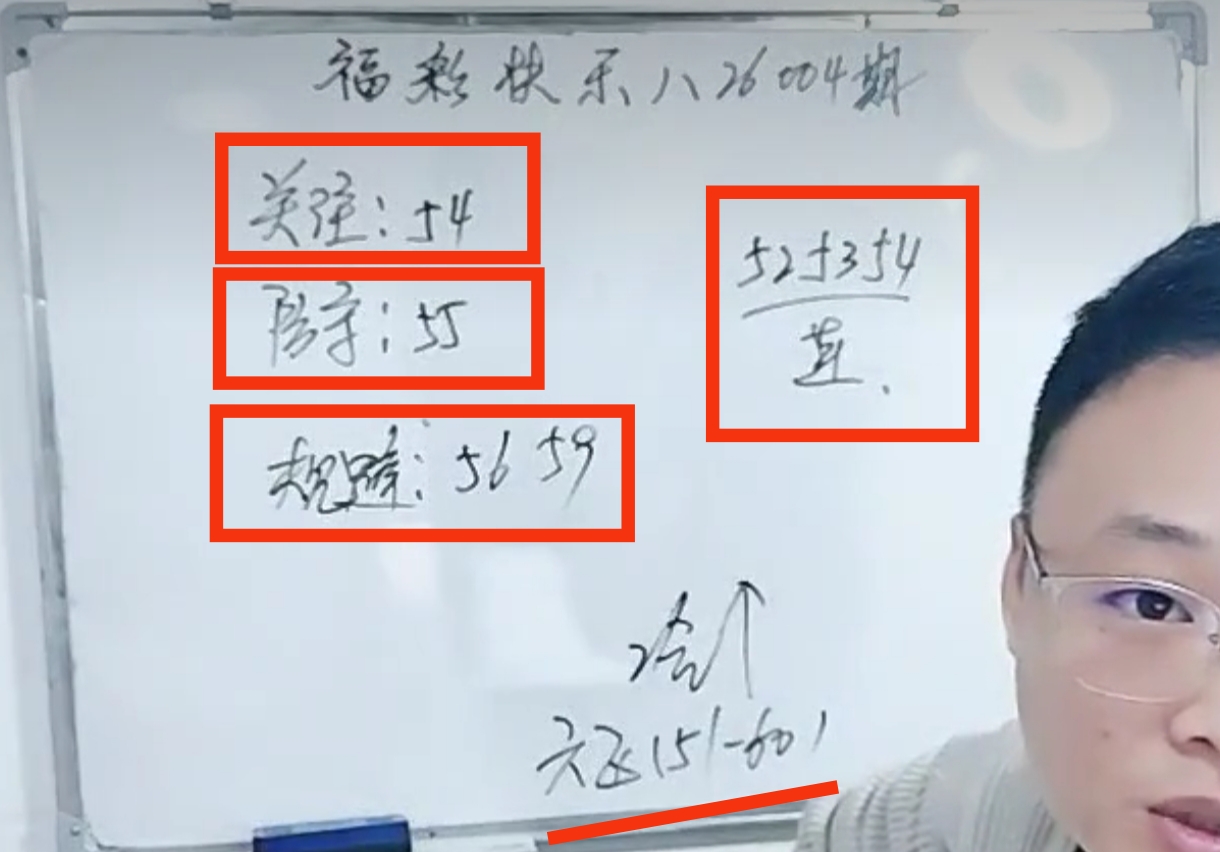 福彩快乐八26004期
关注：54
防守：55
525354
直、
规避：56 59
冷↑
六区(51-60)